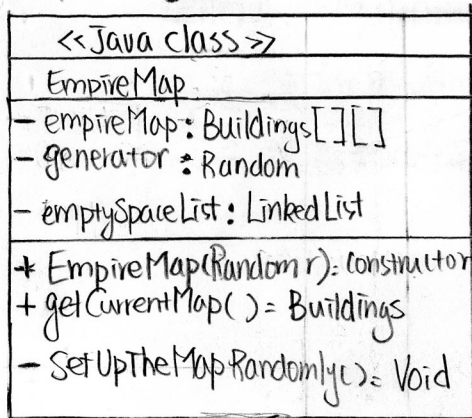 <<Java class>>
EmpireMap
- empireMap: Buildings[][]
- generator: Random
- emptySpaceList: LinkedList
+ EmpireMap(Random r): Constructor
+ getCurrentMap() = Buildings
- SetUpTheMapRandomly() = Void